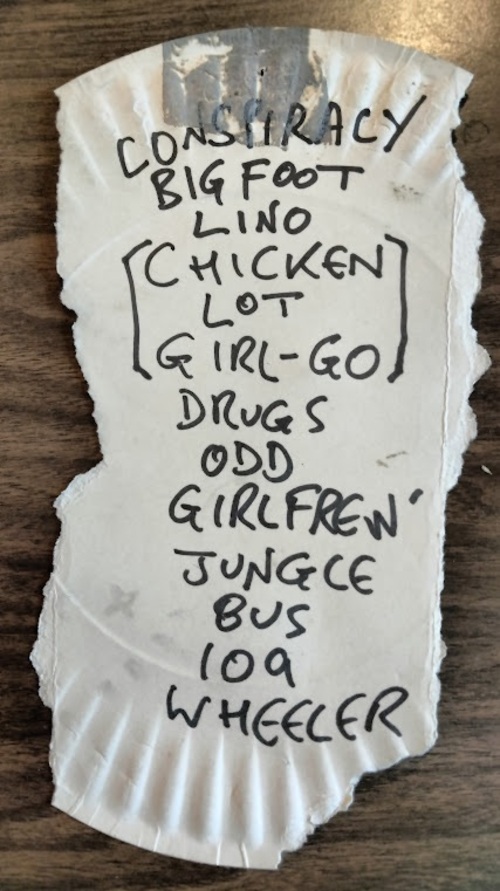 CONSPIRACY
BIGFOOT
LINO
[CHICKEN
LOT
GIRL-GO]
DRUGS
ODD
GIRLFREN'
JUNGLE
BUS
109
WHEELER